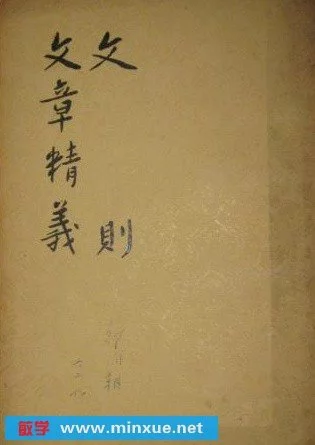 文則
文章精義
敏学 www.minxue.net